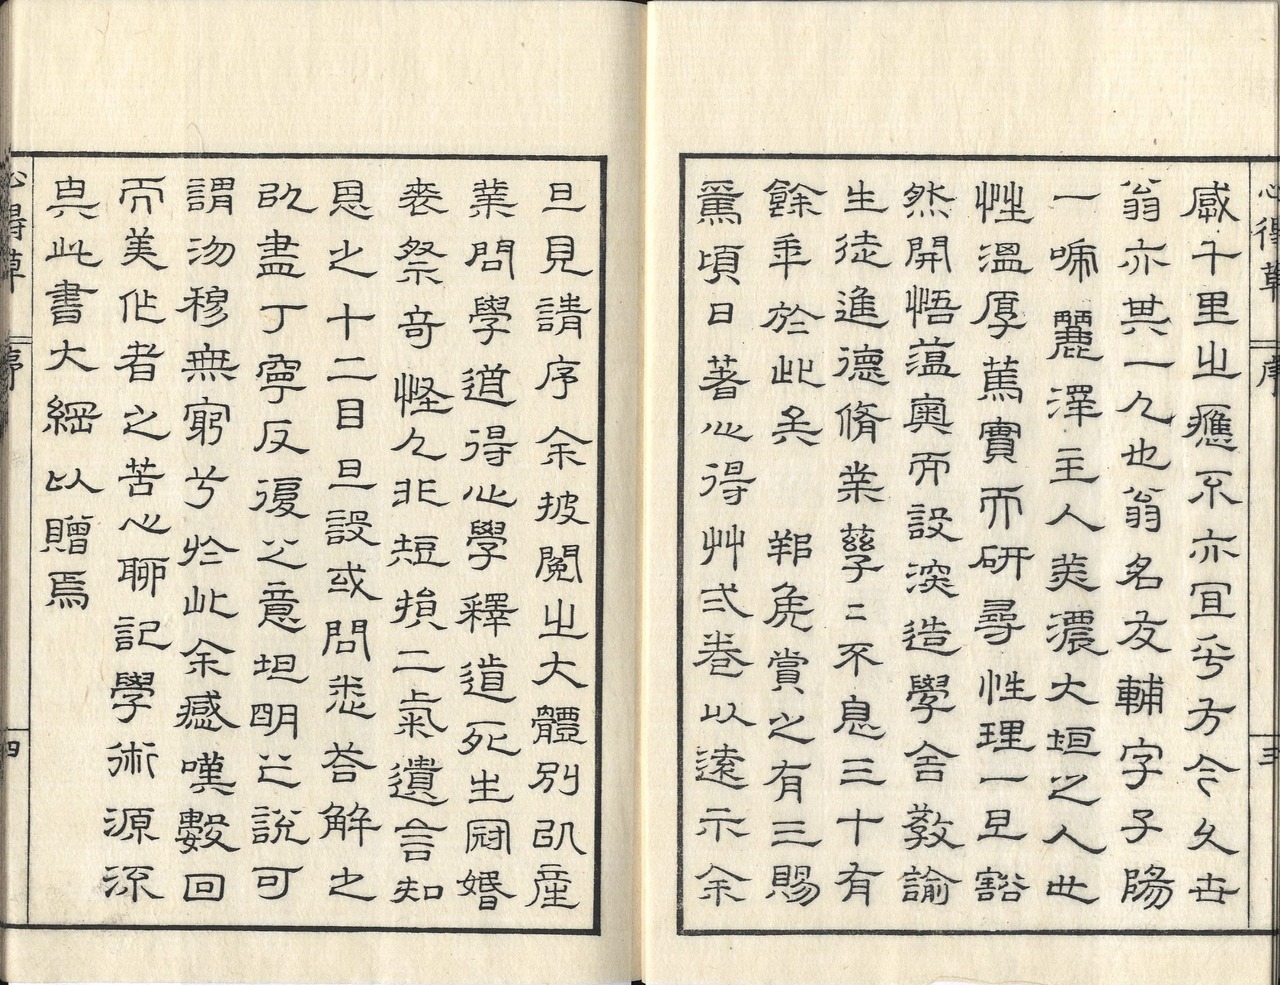 心得草 序 三
感千里之應不亦宜乎方今久世
翁亦其一人也翁名友輔字子陽
一嘯麗澤主人美濃大垣之人世
性溫厚篤實而研尋性理一旦豁
然開悟蘊奧而設深造學舍教諭
生徒進德脩業孳〻不息三十有
餘年於此矣 鄰侯賞之有三賜
焉頃日著心得艸弍卷以遠示余
且見請序余披閱之大體別以產
業問學道得心學釋道死生冠婚
喪祭奇怪人非短損二氣遺言知
恩之十二目且設或問悉答解之
以盡丁寧反復之意坦明之說可
謂沕穆無窮兮於此余感嘆數回
而美作者之苦心聊記學術源流
與此書大綱以贈焉
心得草 序 四